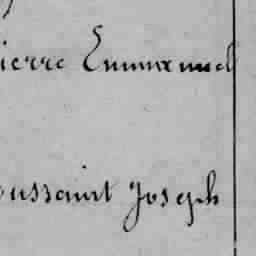 ierre Emmanuel
oussaint Joseph